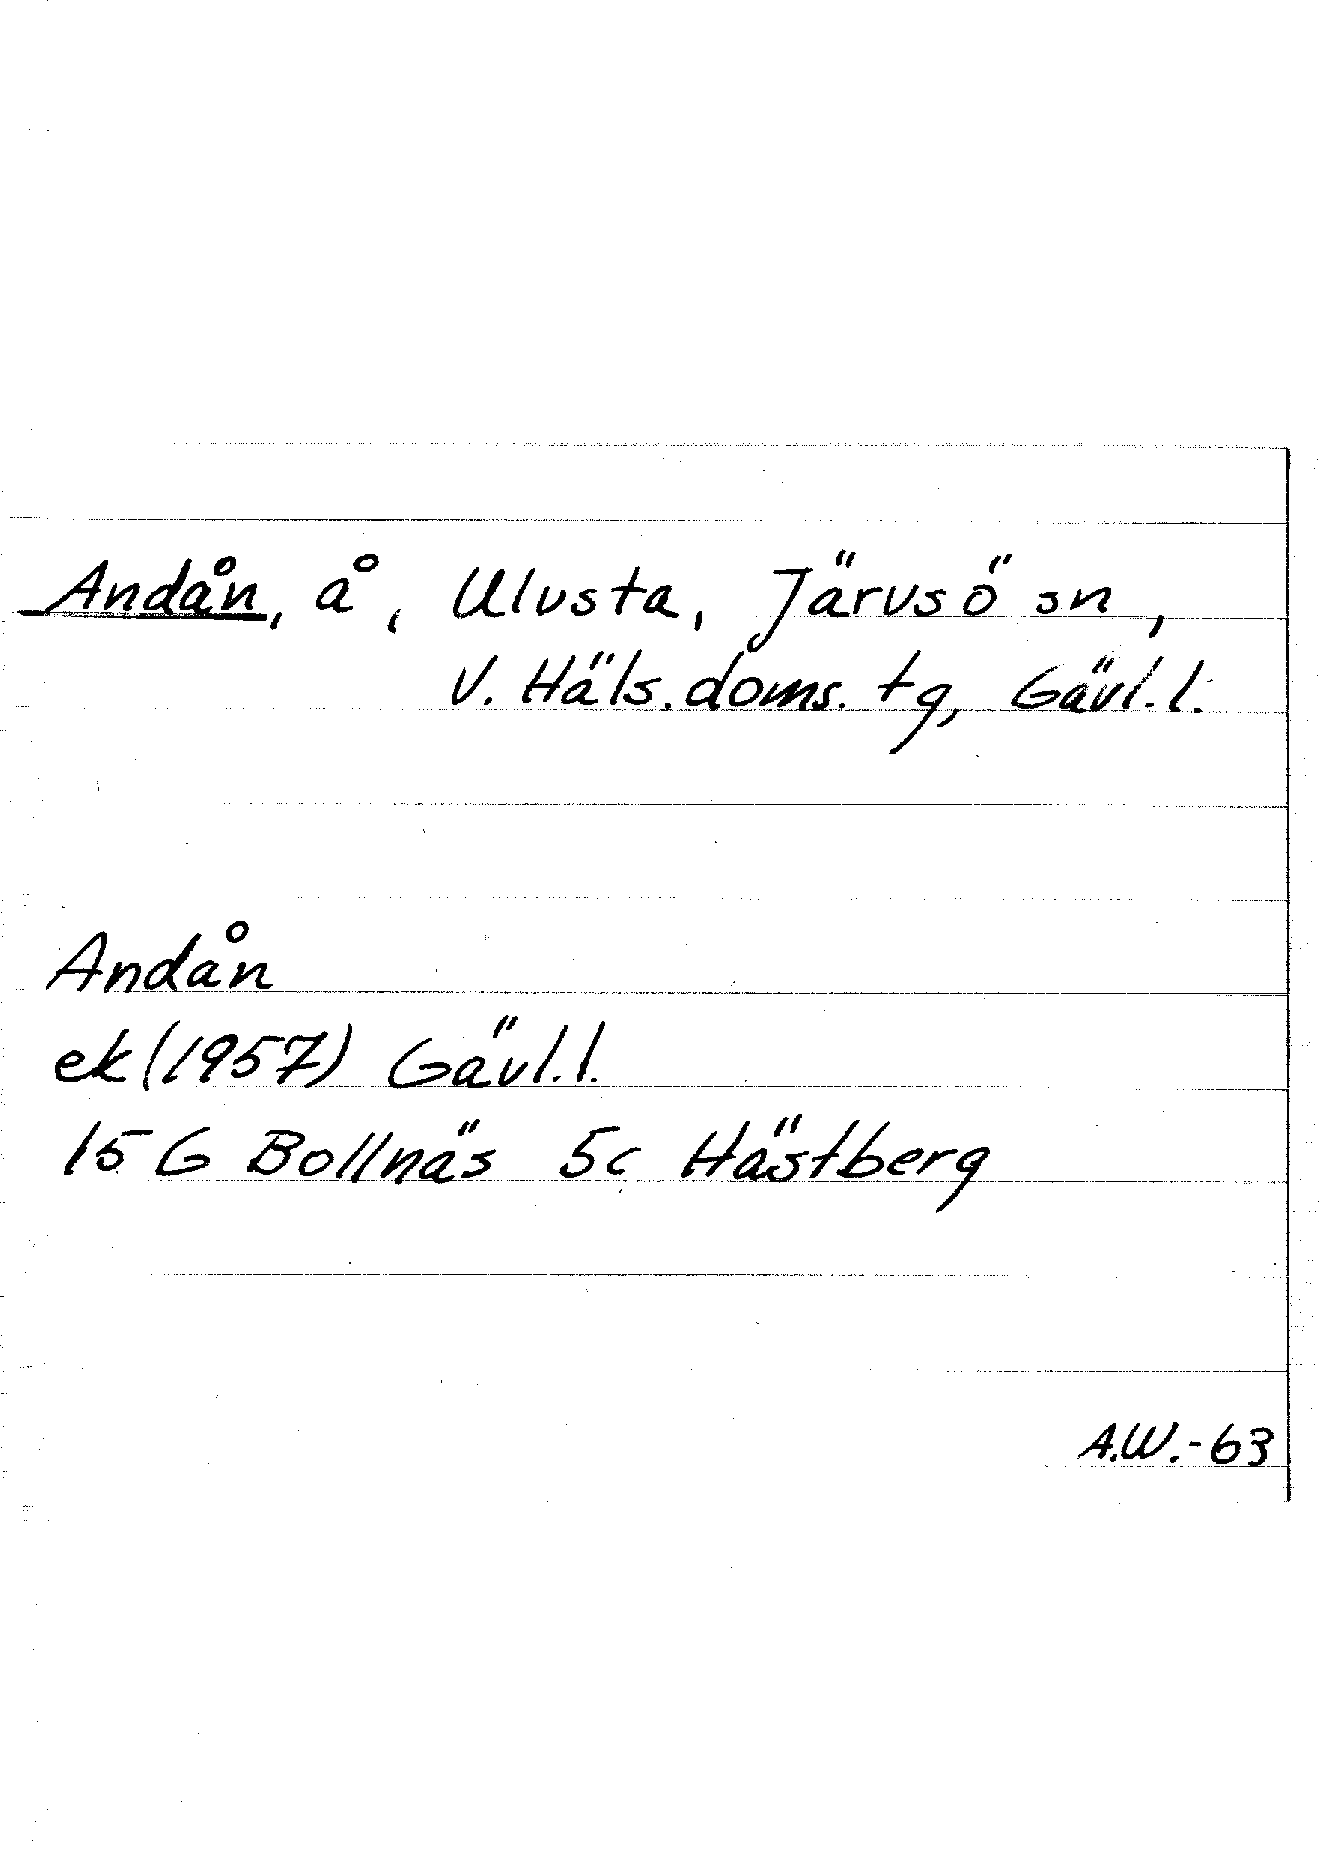 Andån, å, Ulvsta, Järvsö sn,
V. Häls. doms. tg, Gävl. l.
Andån
ek (1957) Gävl. l.
15 G Bollnäs 5c Hästberg
A.W.-63